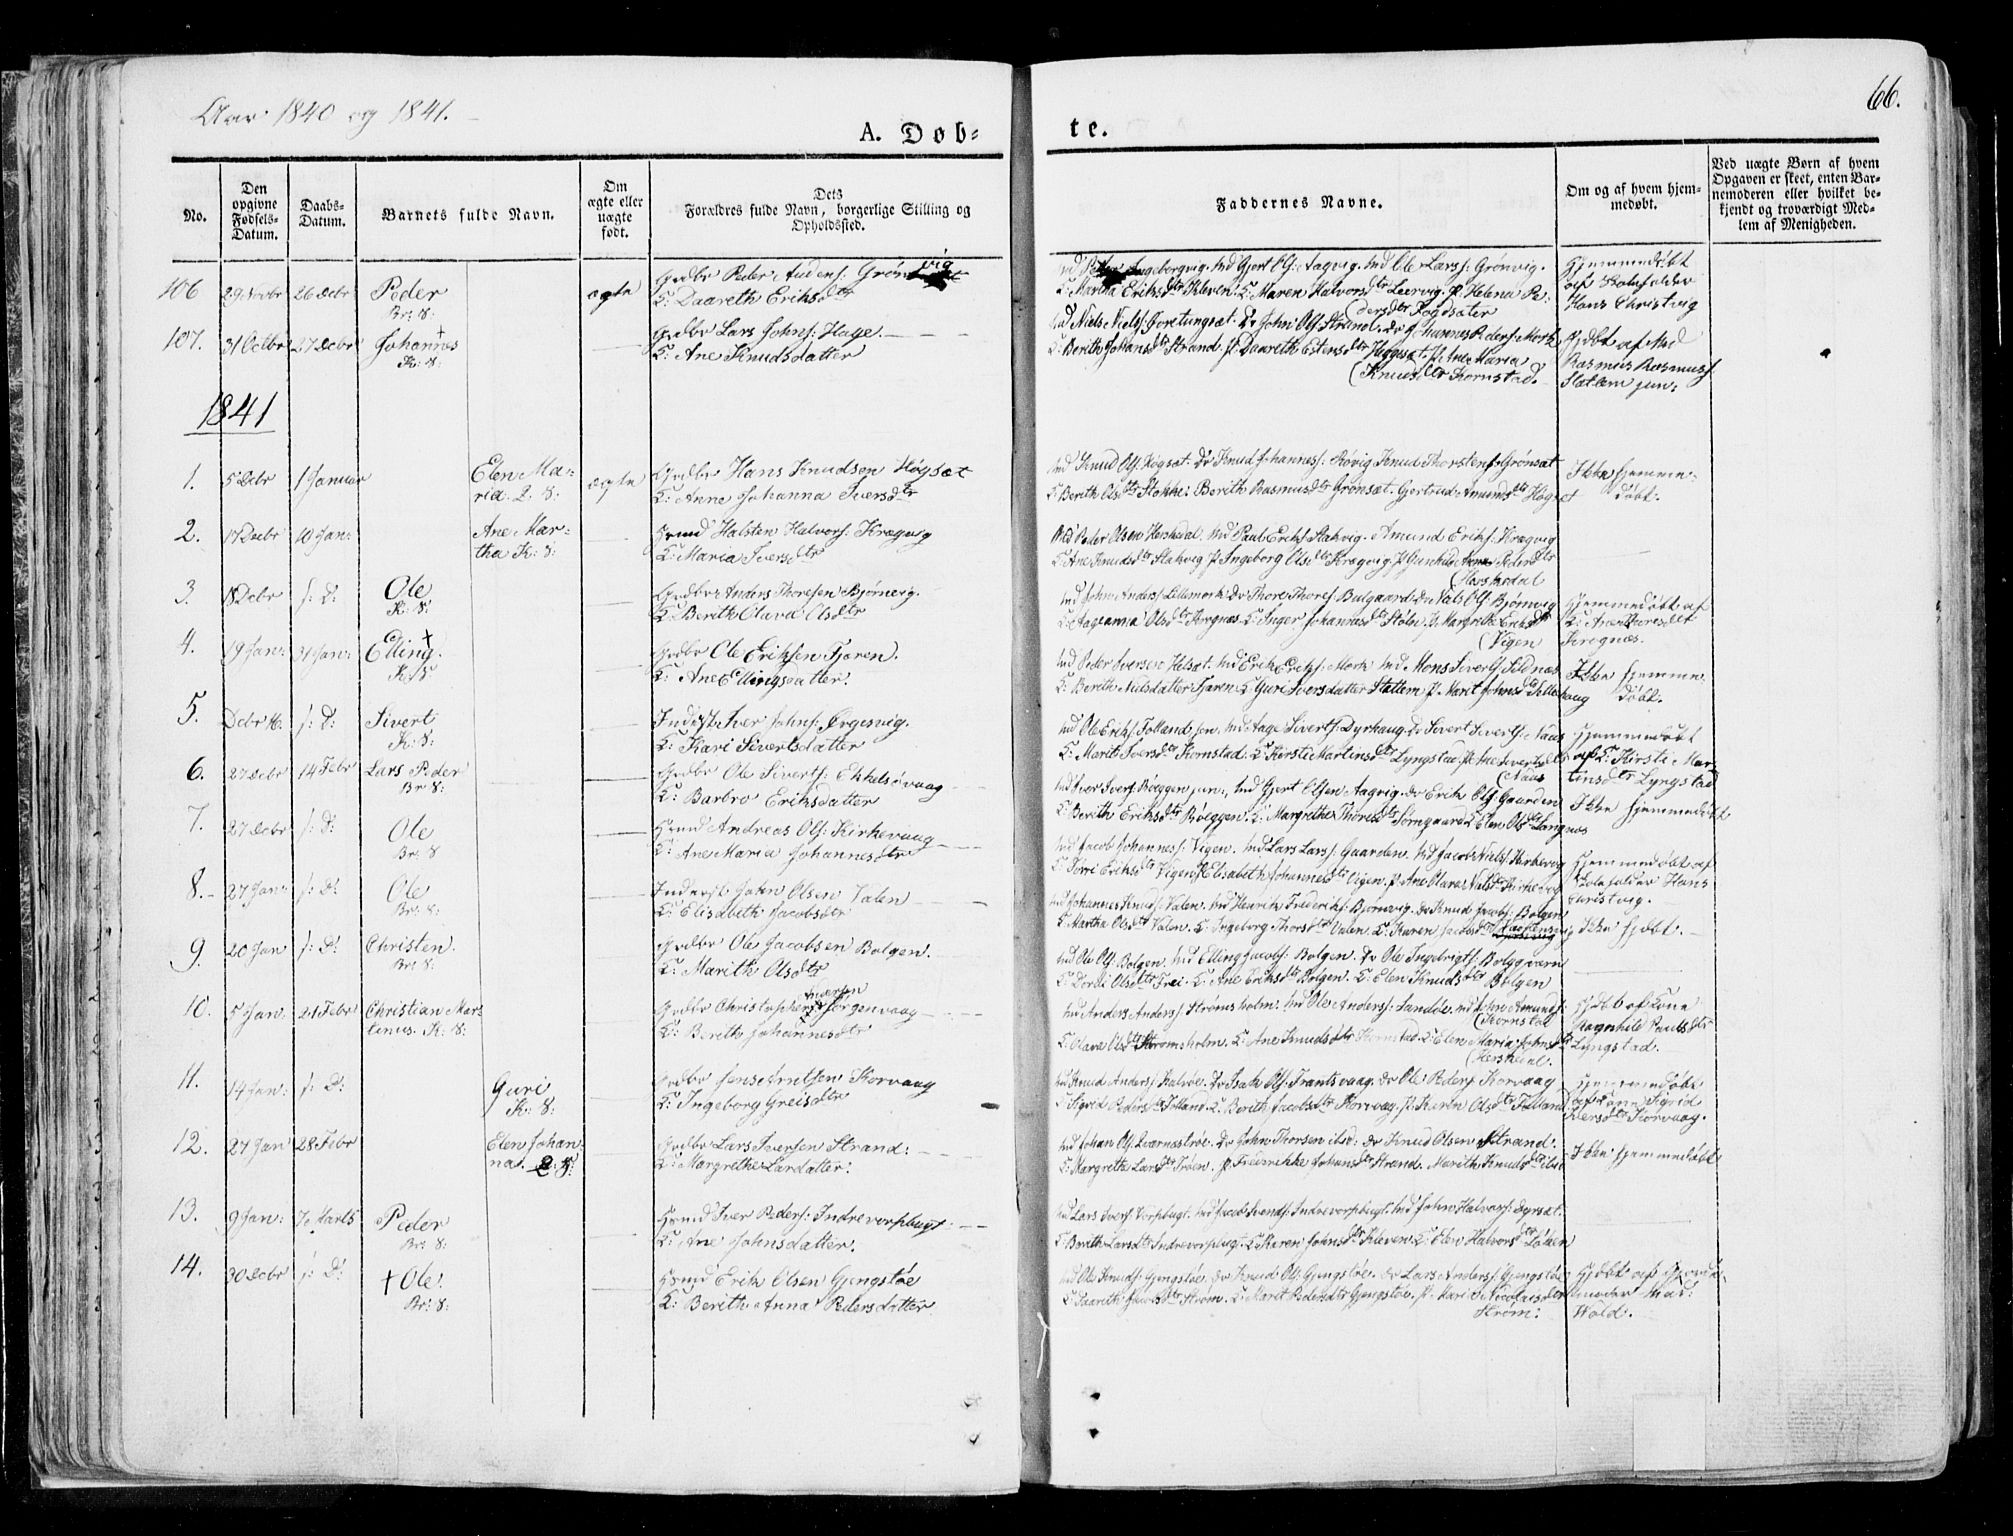 Aar 1840 og 1841.
66.
A. Døb-
te.
No.
Den
opgivne
Fødsels-
Datum.
Daabs-
Datum.
Barnets fulde Navn.
Om
ægte eller
uægte
født.
Dets
Forældres fulde Navn, borgerlige Stilling og
Opholdssted.
Faddernes Navne.
Om og af hvem hjem-
medøbt.
Ved uægte Børn af hvem
Opgaven er skeet, enten Bar-
nemoderen eller hvilket be-
kjendt og troværdigt Med-
lem af Menigheden.
106 29 Novbr 26 Decbr Peder ægte Gdbr Peder
Br: S: K: Daareth Eriksdtr
Ingeborgvig. Md Gjert Ols: Aagvig. Md Ole Larss: Grønvig.
K: Martha Eriksdtr Kleven. K: Maren Halvorsdtr Leervig. P. Helena Pe-
dersdtr
Hjemmedøbt
af
Hans Christvig
107. 31 Octbr 27 Decbr Johannes Gdbr Lars Johns: Hage.
K: S: K: Ane Knudsdatter
Md Niels Niels: Md John Ols: Strand. Johannes Peders: Mork
K: Berith Johansdtr Strand. P. Daareth Estensdtr P. Ane Maria
Knudsdtr Kornstad.
Hjdbt af Md
Rasmus Rasmuss:
Slatlem jun:
1841
1. 5 Decbr 1 Januar Elen Ma-
ria. S: ægte Gdbr Hans Knudsen Høgsæt
K: Anne Johanna Iversdtr
Md Knud Ols: Høgsæt. Knud Johanness: Røvig Knud Thorstens: Grønsæt
K: Berith Olsdtr Stokke: Berith Rasmusdtr Grønsæt. Gjertrud Amundsdtr Høgsæt
Ikke hjemme-
døbt.
2. 17 Decbr 10 Jan: Ane Mar-
tha K: S: Hmd Halsten Halvors: Krægvig
K: Maria Iversdtr
Md Peder Olsen Hershdal. Md Paul Eriks: Stakvig. Amund Eriks: Krægvig
K: Ane Knudsdtr Stakvig P. Ingeborg Olsdtr Krægvig. P. Gunhild Pedersdtr
3. 18 Decbr s: D: Ole Gdbr Anders Thoresen Bjørnevig.
K: S: K: Berith Olava Olsdtr
Md John Anders: Lillemork. Thore Thores: Bulgaard. Niels Ols: Bjørnvig
Olsdtr K: Inger Johannesdtr P. Margrethe Eriksdtr
Vigen
Hjemmedøbt af
4. 19 Jan: 31 Jan: Elling. Gdbr Ole Eriksen Tjøren.
K: S: K: Ane Ellingsdatter.
Md Peder Iversen Helsæt. Md Erik Eriks: Mork Md Mons Sivers:
K: Berith Nielsdatter Tjøren. K: Guri Iversdatter Slattem P. Marit Johnsdtr
Ikke hjemme-
døbt.
5. Decbr 16. s: D: Sivert Inderst Iver Johns: Ørgesvig.
K: S: K: Kari Sivertsdatter
Md Ole Eriks: Folland jun. Md Aage Siverts: Dyrhaug. Sivert Siverts: Naas
K: Marit Iversdtr Kornstad. K: Kirsti Martinsdtr Lyngstad. P. Ane Sivertsdtr
Naas
Hjemmedøbt
af K: Kirsti Mar-
tinsdtr Lyngstad
6. 27 Decbr 14 Febr Lars Peder Gdbr Ole Siverts: Ekkelsøvaag
Br: S: K: Barbro Eriksdatter
Md Iver Ivers: Røeggen jun:, Md Gjert Olsen Aagvig. Erik Ols: Gaarden
K: Berith Eriksdtr Røeggen. K: Margrethe Thoresdtr Sørngaard K: Elen Olsdtr Langnæs
Ikke hjemmedøbt
7. 27 Decbr s: D: Ole Hmd Andreas Ols: Kirkevaag
Br: S K: Ane Maria Johannesdtr
Md Jacob Johanness: Vigen. Md Lars Larss: Gaarden. Md Jacob Niels: Kirkevig
K: Eriksdtr Vigen. Elisabeth Johannesdtr Vigen. P. Ane Olava Nielsdtr
Hjemmedøbt af
Hans
Christvig.
8. 27 Jan: s: D: Ole Inderst John Olsen Valen
Br: S: K: Elisabeth Jacobsdtr
Md Johannes Knuds: Valen. Md Henrik Frederiks: Bjørnvig. Knud Jacobs: Bolgen
K: Martha Olsdtr Valen. K: Ingeborg Thorsdtr Valen. K: Karen Jacobsdtr
Ikke hjdbt.
9. 20 Jan s: D: Christen. Gdbr Ole Jacobsen Bolgen.
Br: S: K: Marith Olsdtr
Md Ole Ols: Bolgen. Md Elling Jacobs: Bolgen. Ole Ingebrigts: Bolggværn
K: Dordi Olsdtr Frei. K: Ane Eriksdtr Bolgen. K: Elen Knudsdtr Bolgen
10. 5 Jan: 21 Febr Christian Mar-
tinus. K: S: Gdbr Christopher Iversen Jørgenvaag
K: Berith Johannesdtr
Md Anders Anders: Strømsholm. Md Ole Anders: Sandøe. Md Amunds:
Kornstad
K: Olava Olsdtr Strømsholm. K: Ane Knudsdtr Kornstad. K: Elen Maria Johnsdtr
Hershdal.
Hjdbt af Kone
Ragnhild Paulsdtr
Lyngstad.
11. 14 Jan: s: D: Guri
K: S: Gdbr Jens Arntsen Korvaag
K: Ingeborg Greisdtr
Md Knud Anders: Kalvøe. Isak Ols: Frantsvaag. Ole Peders Korvaag
K: Sigrid Pedersdtr Folland. K: Berith Jacobsdtr Korvaag. P. Karen Olsdtr Folland
Hjemmedøbt
af Kone Sigrid
Pedersdtr Korvaag.
12. 27 Jan 28 Febr Elen Johan-
na. S: Gdbr Lars Iversen Strand:
K: Margrethe Larsdatter:
Md Johan Ols: Qvernestrøe. John Thorsen ibid: Knud Olsen Strand.
K: Margrethe Larsdtr Trøen. P. Fredrikke Johansdtr Strand. Marith Knudsdtr ibid
Ikke hjemmedøbt
13. 9 Jan: 7 Marts Peder Hmd Iver Peders: Indrevorpbugt
Br: S: K: Ane Johnsdatter.
Md Lars Ivers: Vorpbugt. Md Jacob Svends: Indrevorpbugt. Md John Halvors: Dyrsæt.
K: Berith Larsdtr Indrevorpbugt. K: Karen Johnsdtr Kleven. K: Elen Halvorsdtr Løken
14. 30 Decbr s: D: Ole. Hmd Erik Olsen Gjengstøe
Br: S: K: Berith Anna Pedersdatter.
Md Ole Knuds: Gjengstøe. Knud Ols: Gjengstøe. Lars Anders: Gjengstøe
K: Daareth Jacobsdtr Strøm. K: Marit Pedersdtr Gjengstøe. P. Mari Nicolaisdtr
Strøm:
Hjdbt af Gjorde-
moder Mad:
Wold.